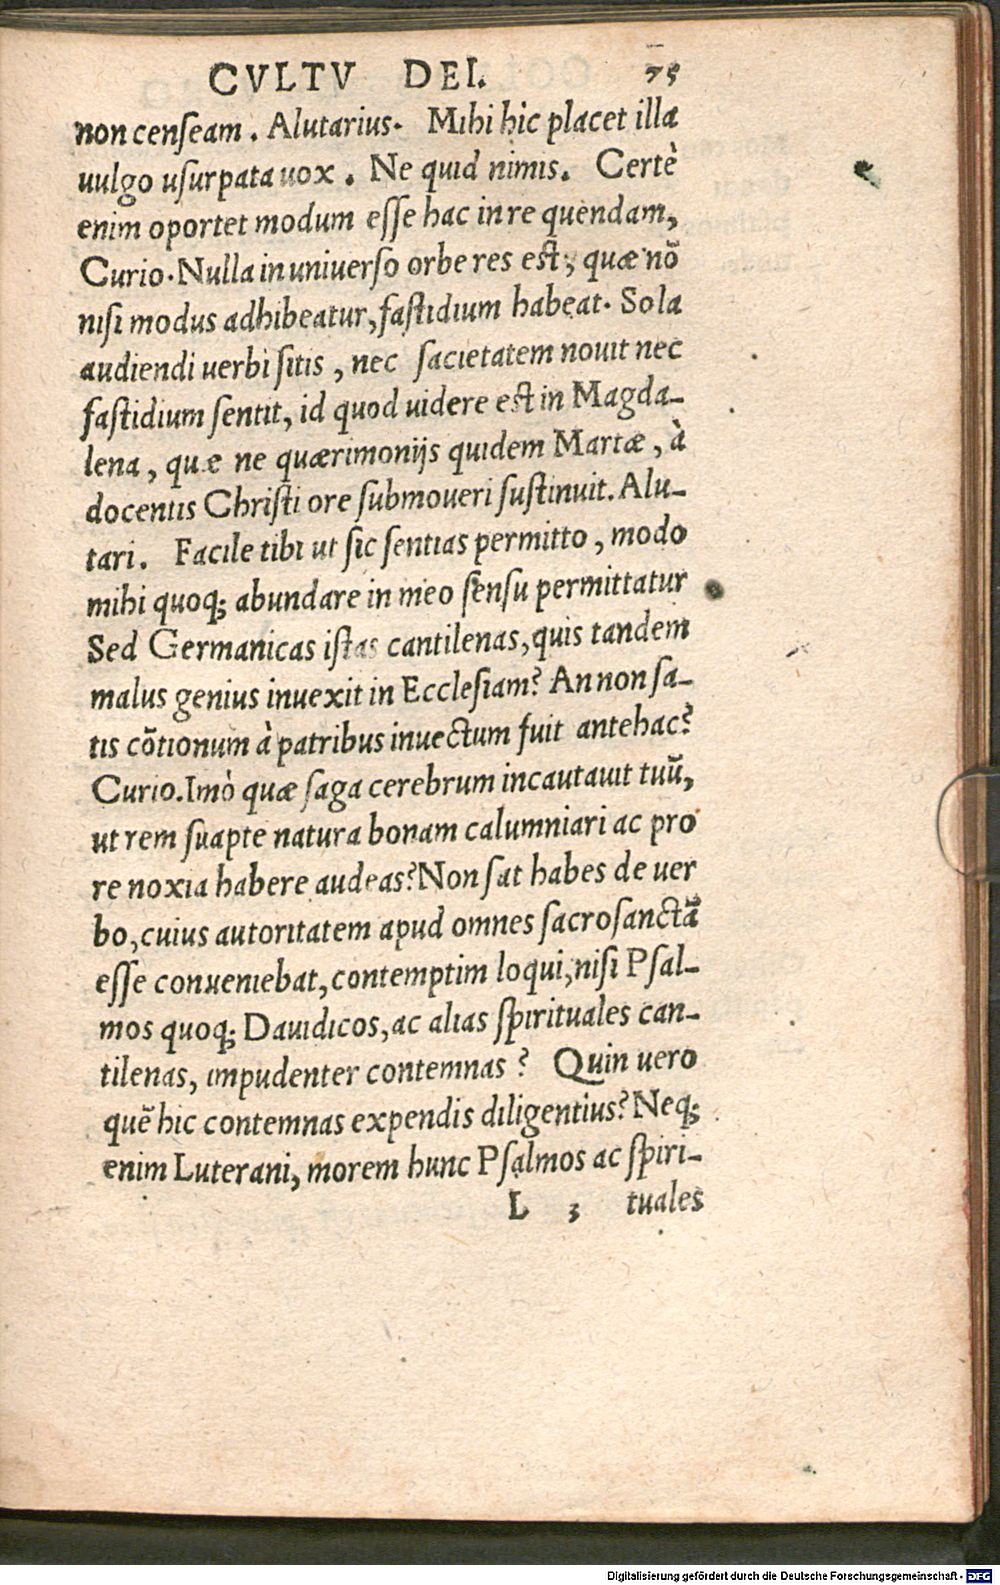 CVLTV DEI. 75
non censeam. Alutarius. Mihi hic placet illa
uulgo usurpata uox. Ne quid nimis. Certè
enim oportet modum esse hac in re quendam,
Curio. Nulla in universo orbe res est, quæ nō
nisi modus adhibeatur, fastidium habeat. Sola
audiendi uerbi sitis, nec sacietatem nouit nec
fastidium sentit, id quod uidere est in Magda-
lena, quæ ne quærimonijs quidem Martæ, à
docentis Christi ore submoueri sustinuit. Alu-
tari. Facile tibi ut sic sentias permitto, modo
mihi quoq; abundare in meo sensu permittatur
Sed Germanicas istas cantilenas, quis tandem
malus genius inuexit in Ecclesiam? An non sa-
tis cōtionum à patribus inuectum fuit antehac?
Curio. Imò quæ saga cerebrum incautauit tuū,
ut rem suapte natura bonam calumniari ac pro
re noxia habere audeas? Non sat habes de uer
bo, cuius autoritatem apud omnes sacrosanctā
esse conueniebat, contemptim loqui, nisi Psal-
mos quoq; Dauidicos, ac alias spirituales can-
tilenas, impudenter contemnas? Quin uero
quē hic contemnas expendis diligentius? Neq;
enim Luterani, morem hunc Psalmos ac spiri-
L 3 tuales
Digitalisierung gefördert durch die Deutsche Forschungsgemeinschaft - DFG